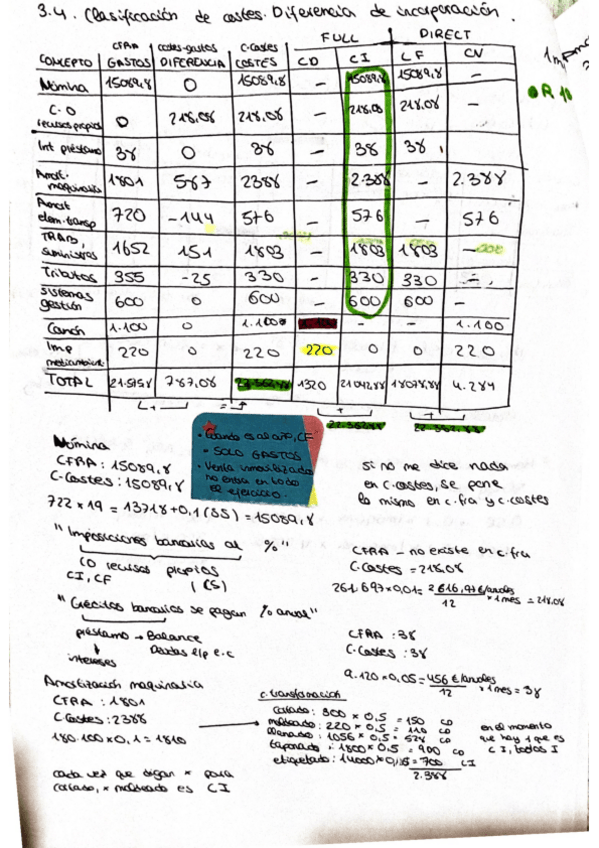 3.4. Clasificación de costes. Diferencia de incorporación.
FULL DIRECT
CONCEPTO CFRA GASTOS costes-gastos DIFERENCIA C-Costes COSTES CD CI CF CV
Nómina 15089,8 0 15089,8 – 15089,8 15089,8 –
C.O recursos propios 0 218,08 218,08 – 218,08 218,08 –
Int préstamo 38 0 38 – 38 38
Amort. maquinaria 1801 587 2388 – 2.388 – 2.388
Amort elem. transp 720 -144 576 – 576 – 576
TRAB, suministros 1652 151 1803 – 1803 1803 –
Tributos 355 -25 330 – 330 330 –
sistemas gestión 600 0 600 – 600 600 –
Canon 1.100 0 1.100 – – 1.100
Imp medioambient. 220 0 220 220 0 0 220
TOTAL 787,08 1320 21042,88 18078,88 4.284
R 10
SOLO GASTOS
Venta inmovilizado no entra en todo el ejercicio.
Nómina
CFRA: 15089,8
C-Costes: 15089,8
722 x 19 = 13718 + 0,1 (SS) = 15089,8
si no me dice nada
en C.costes, se pone
lo mismo en c.fra y c.costes
"Imposiciones bancarias al %"
CO recursos propios
CI, CF (CS)
CFRA – no existe en c.fra
C-Costes = 218,08
261.697 x 0,01 = 2616,97 €/anuales / 12 x 1 mes = 218,08
"Créditos bancarios se pagan % anual"
préstamo → Balance
Deudas e/p e.c
intereses
CFRA: 38
C-Costes: 38
9.120 x 0,05 = 456 €/anuales / 12 x 1 mes = 38
Amortización maquinaria
CFRA: 1801
C-Costes: 2388
180.100 x 0,1 = 1810
C. transformación
colado: 300 x 0,5 = 150 CD
moldeado: 220 x 0,5 = 110 CD
llenado: 1056 x 0,5 = 528 CD
taponado: 1800 x 0,5 = 900 CD
etiquetado: 14000 x 0,05 = 700 CI
2.388
en el momento
que hay 1 que es
CI, todos I
cada vez que digan x para
colado, x moldeado es CI